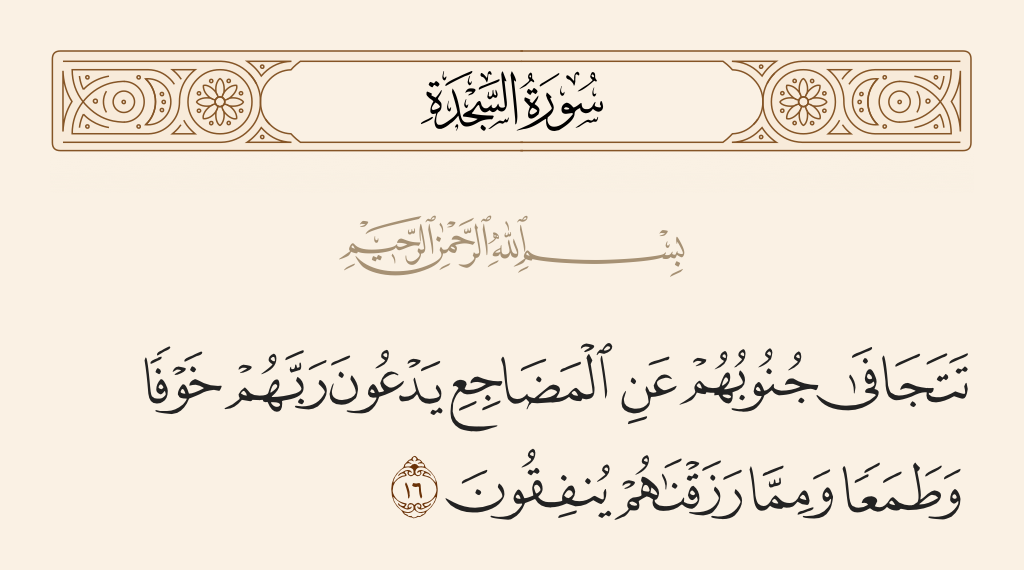 سُورَةُ السَّجْدَةِ
بِسْمِ ٱللَّهِ ٱلرَّحْمَٰنِ ٱلرَّحِيمِ
تَتَجَافَىٰ جُنُوبُهُمْ عَنِ ٱلْمَضَاجِعِ يَدْعُونَ رَبَّهُمْ خَوْفًا
وَطَمَعًا وَمِمَّا رَزَقْنَاهُمْ يُنفِقُونَ ١٦